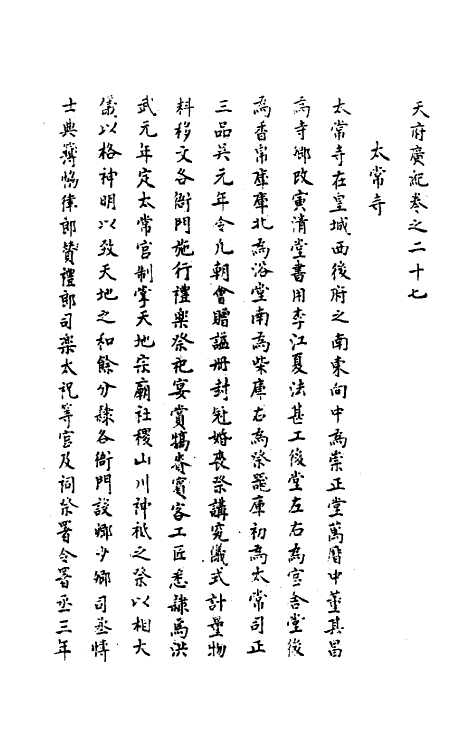 天府廣記卷之二十七
太常寺
太常寺在皇城西後府之南東向中為崇正堂萬曆中董其昌
為寺卿改寅清堂書用李江夏法甚工後堂左右為官舍堂後
為香帛庫庫北為浴堂南為柴庫右為祭噐庫初為太常司正
三品吳元年令凡朝會贈諡册封冠婚喪祭講究儀式計量物
料移文各衙門施行禮樂祭祀宴賞犒賚賓客工匠悉隷焉洪
武元年定太常官制掌天地宗廟社稷山川神祇之祭以相大
儀以格神明以致天地之和餘分隷各衙門設卿少卿司丞博
士典簿恊律郎贊禮郎司樂太祝等官及詞祭署令署丞三年